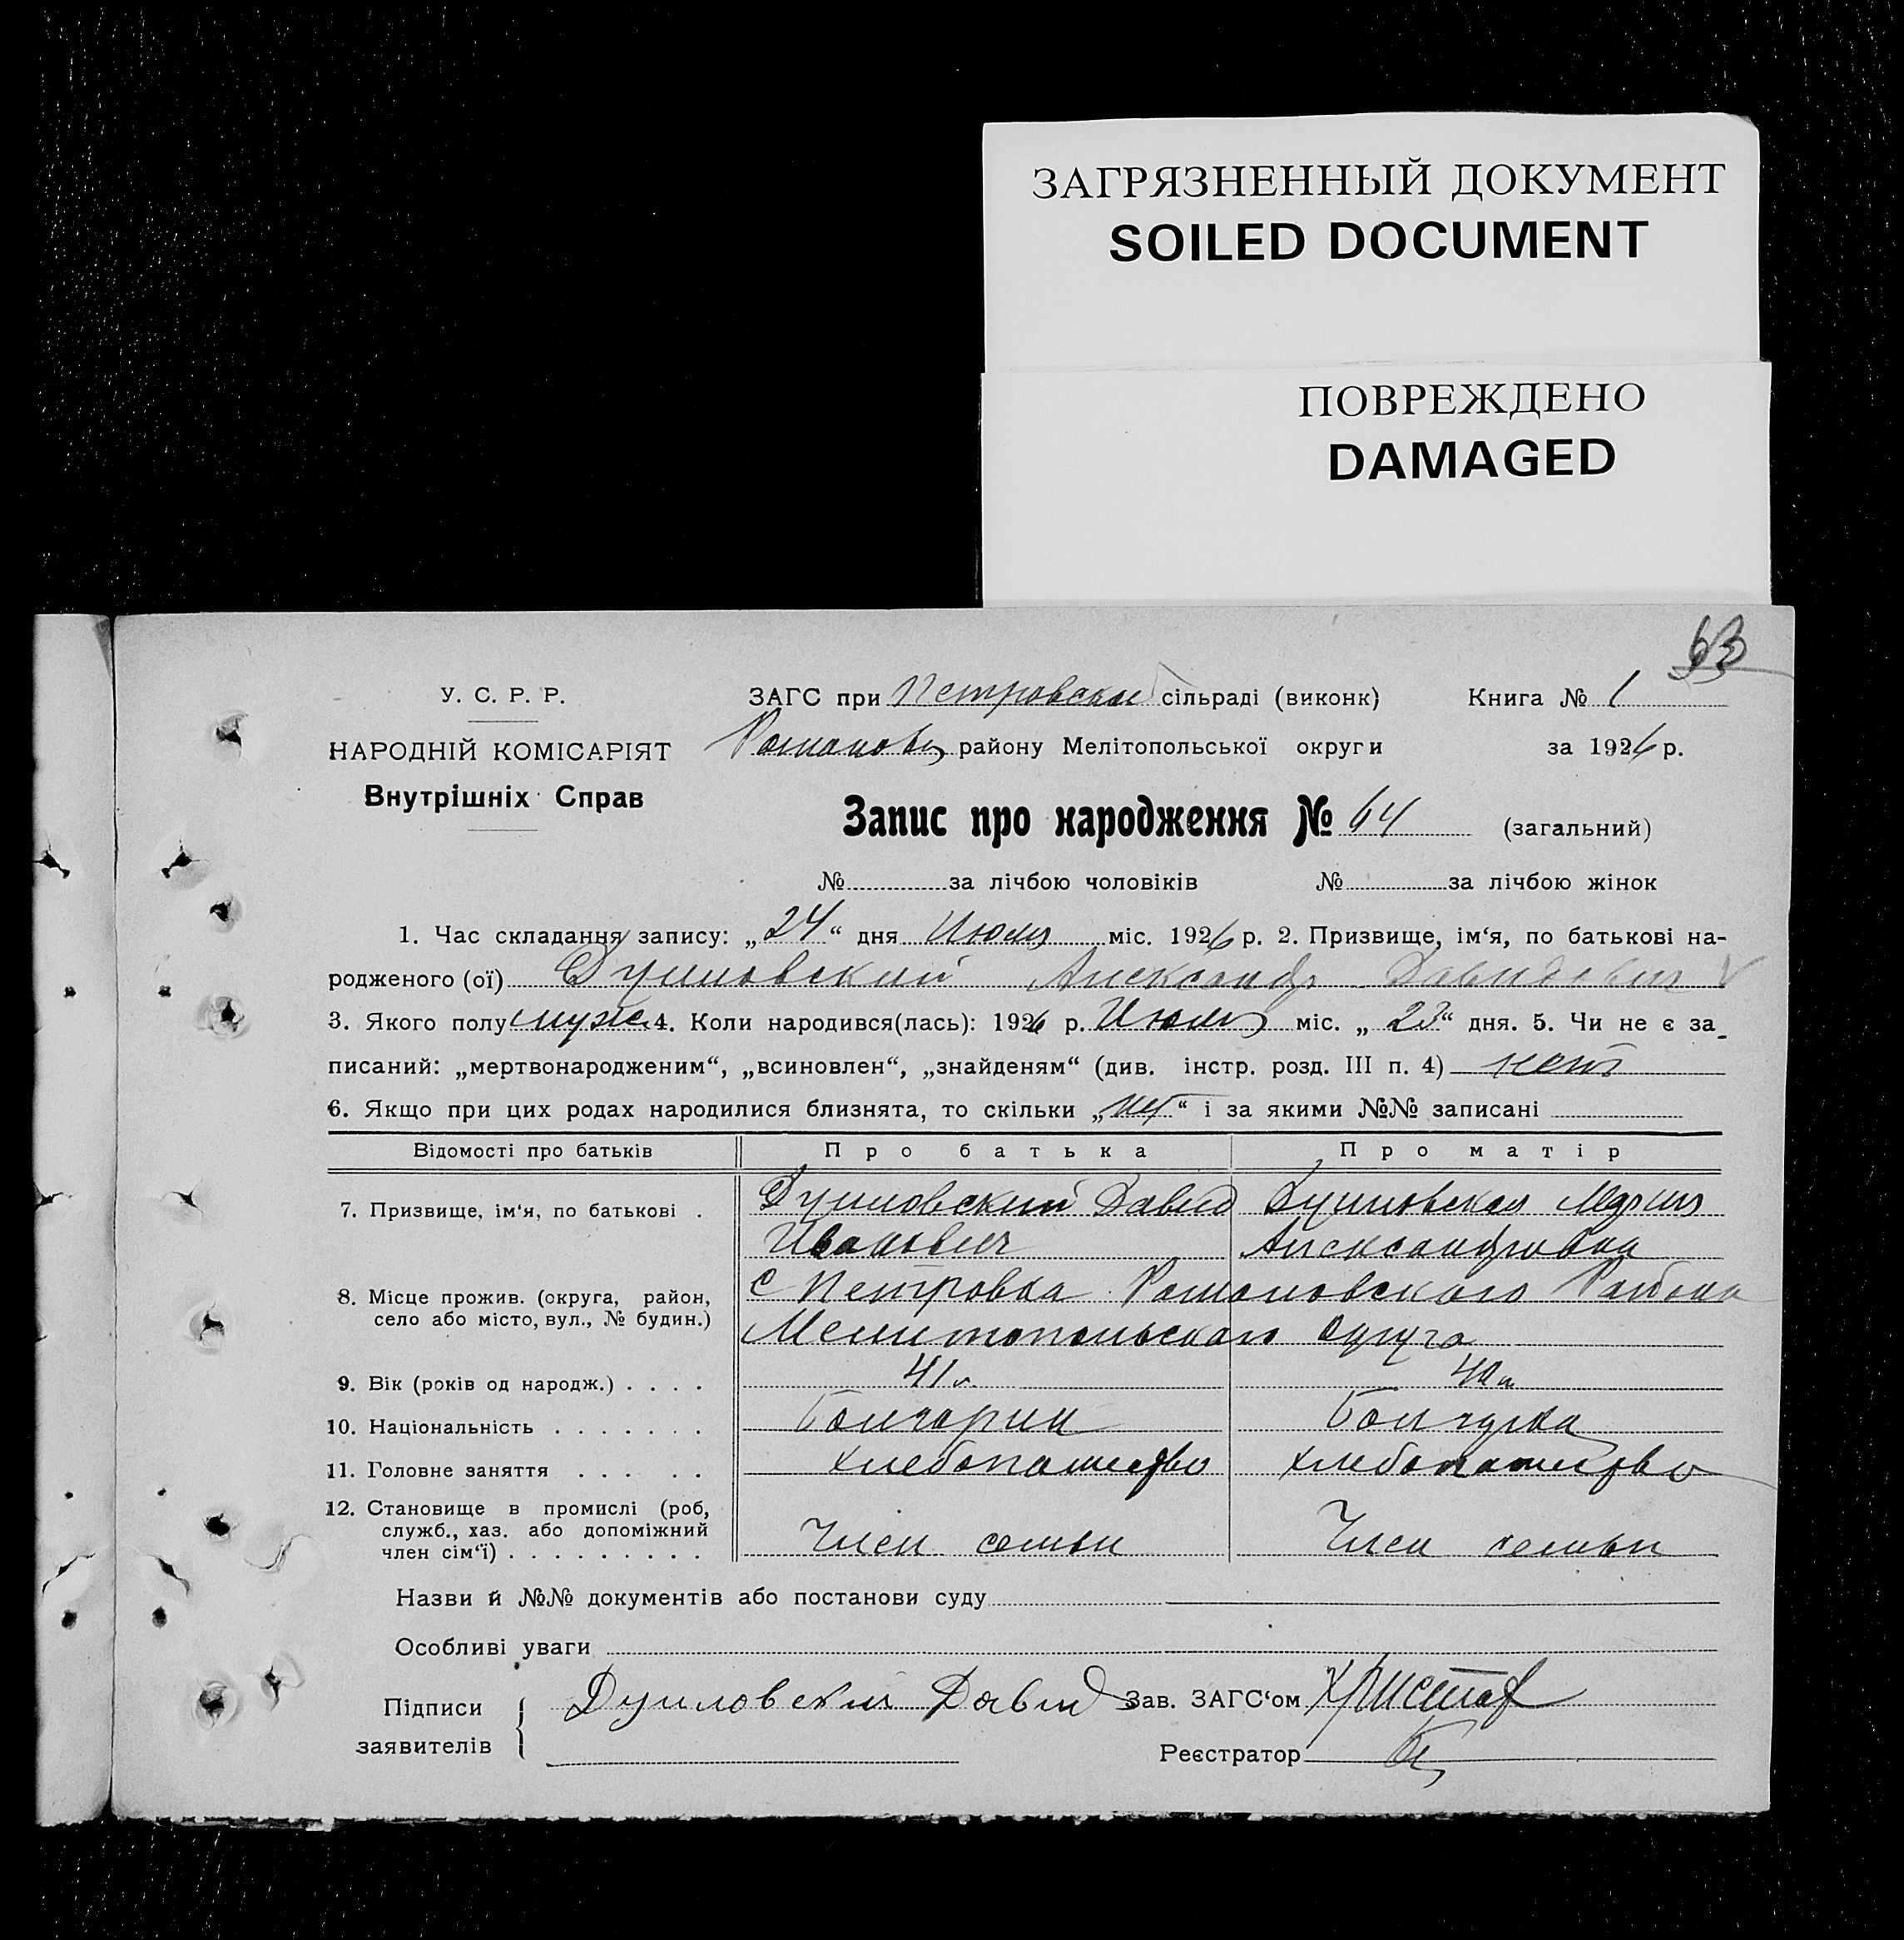 ЗАГРЯЗНЕННЫЙ ДОКУМЕНТ
SOILED DOCUMENT
ПОВРЕЖДЕНО
DAMAGED
63
У. С. Р. Р.
НАРОДНІЙ КОМІСАРІЯТ
Внутрішніх Справ
ЗАГС при Петровской сільраді (виконк) Книга № 1
Романовск району Мелітопольської округи за 1926 р.
Запис про народження № 64 (загальний)
№ за лічбою чоловіків № за лічбою жінок
1. Час складання запису: „24“ дня Июля міс. 1926 р. 2. Призвище, ім‘я, по батькові на-
родженого (ої) Думловский Александр Давидович
3. Якого полу муже 4. Коли народився(лась): 1926 р. Июля міс. „23“ дня. 5. Чи не є за-
писаний: „мертвонародженим“, „всиновлен“, „знайденям“ (див. інстр. розд. III п. 4) нет
6. Якщо при цих родах народилися близнята, то скільки „нет“ і за якими №№ записані
Відомості про батьків Про батька Про матір
7. Призвище, ім‘я, по батькові . Думловский Давид Думловская Мария
Иванович Александровна
8. Місце прожив. (округа, район, село або місто, вул., № будин.) с Петровка Романовского Района
Мелитопольского округа
9. Вік (років од народж.) . . . . 41 г. 40 л
10. Національність . . . . . . . Болгарин Болгарка
11. Головне заняття . . . . . хлебопашество хлебопашество
12. Становище в промислі (роб,
служб., хаз. або допоміжний
член сім‘ї) . . . . . . . . . Член семьи Член семьи
Назви й №№ документів або постанови суду
Особливі уваги
Підписи заявителів Думловский Давид Зав. ЗАГС‘ом Христов
Реєстратор